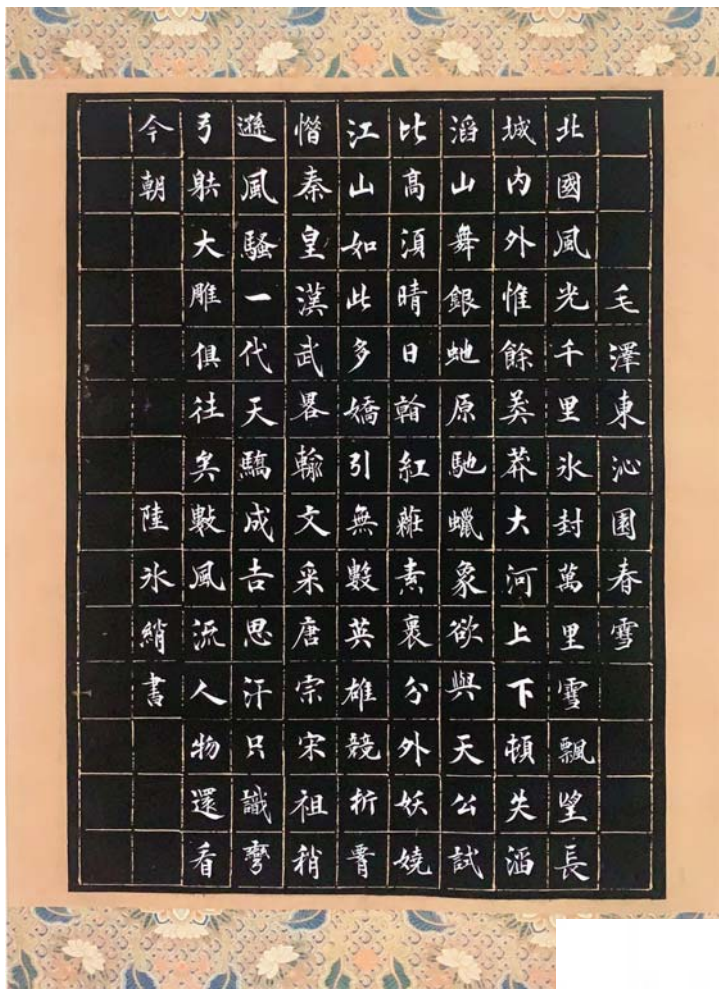 毛澤東沁園春雪
北國風光千里氷封萬里雪飄望長
城內外惟餘莽莽大河上下頓失滔
滔山舞銀虵原馳蠟象欲與天公試
比高須晴日看紅裝素裹分外妖嬈
江山如此多嬌引無數英雄競折腰
惜秦皇漢武畧輸文采唐宗宋祖稍
遜風騷一代天驕成吉思汗只識彎
弓射大雕俱往矣數風流人物還看
今朝 陸氷綃書